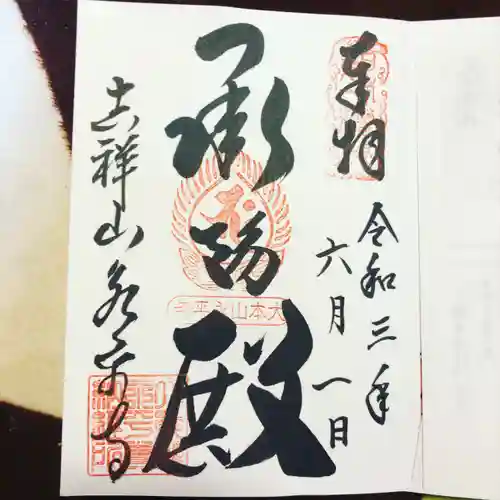 奉拝
令和三年
六月一日
承陽殿
大本山永平寺
吉祥山永平寺